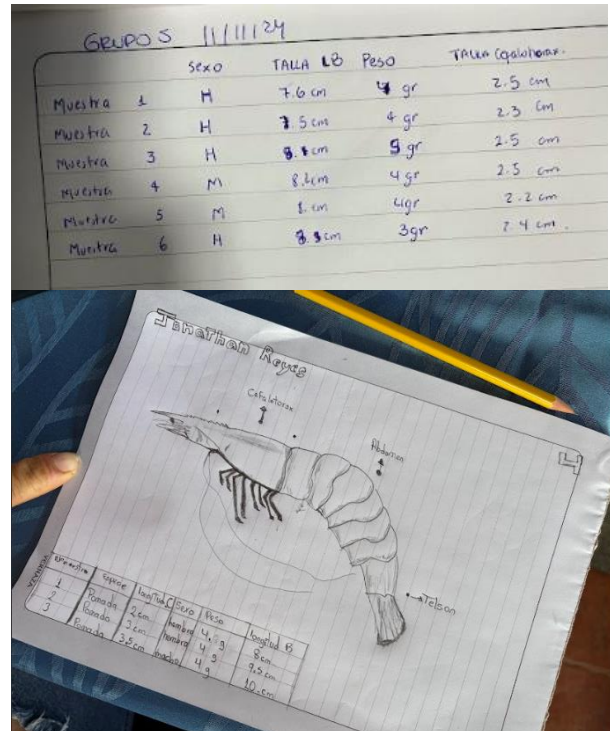 GRUPO 5 11/11/24
Sexo TALLA LB Peso TALLA
Muestra 1 H 7.6 cm 4 gr 2.5 cm
Muestra 2 H 5 cm 4 gr 2.3 cm
Muestra 3 H cm 5 gr 2.5 cm
Muestra 4 M 8.2cm 4gr 2.5 cm
Muestra 5 M cm 4gr 2.2 cm
Muestra 6 H cm 3gr 2.4 cm.
Jonathan Reyes
4
Cefalotorax
Abdomen
Telson
Especie longitud C Sexo Peso longitud B
1 Pomada 2cm hembra 4, g 8cm
2 Pomada 3cm hembra 4 g 9.5cm
3 Pomada 3.5cm macho 4g 10.cm